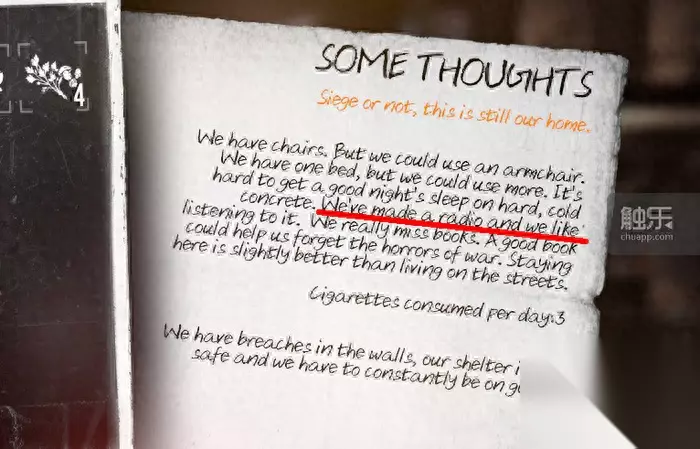 4
SOME THOUGHTS
Siege or not, this is still our home.
We have chairs. But we could use an armchair.
We have one bed, but we could use more. It's
hard to get a good night's sleep on hard, cold
concrete. We've made a radio and we like
listening to it. We really miss books. A good book
could help us forget the horrors of war. Staying
here is slightly better than living on the streets.
Cigarettes consumed per day:3
We have breaches in the walls, our shelter
safe and we have to constantly be on
触乐
chuapp.com